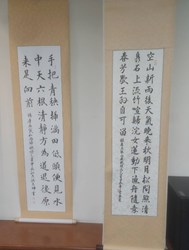 空山新雨後天氣晚來秋明月松間照清
泉石上流竹喧歸浣女蓮動下漁舟隨意
春芳歇王孫自可留
手把青秧插滿田低頭便見水
中天六根清靜方為道退後原
來是向前